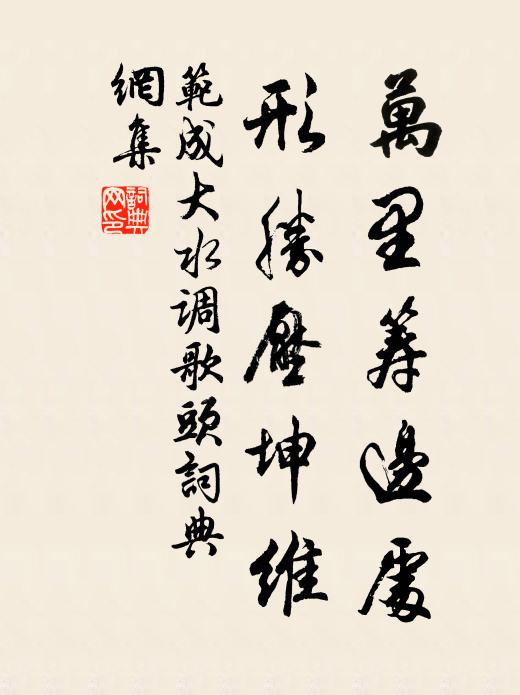 萬里籌邊處
形勝壓坤維
範成大水调歌頭詞典
網集
詞典
网印